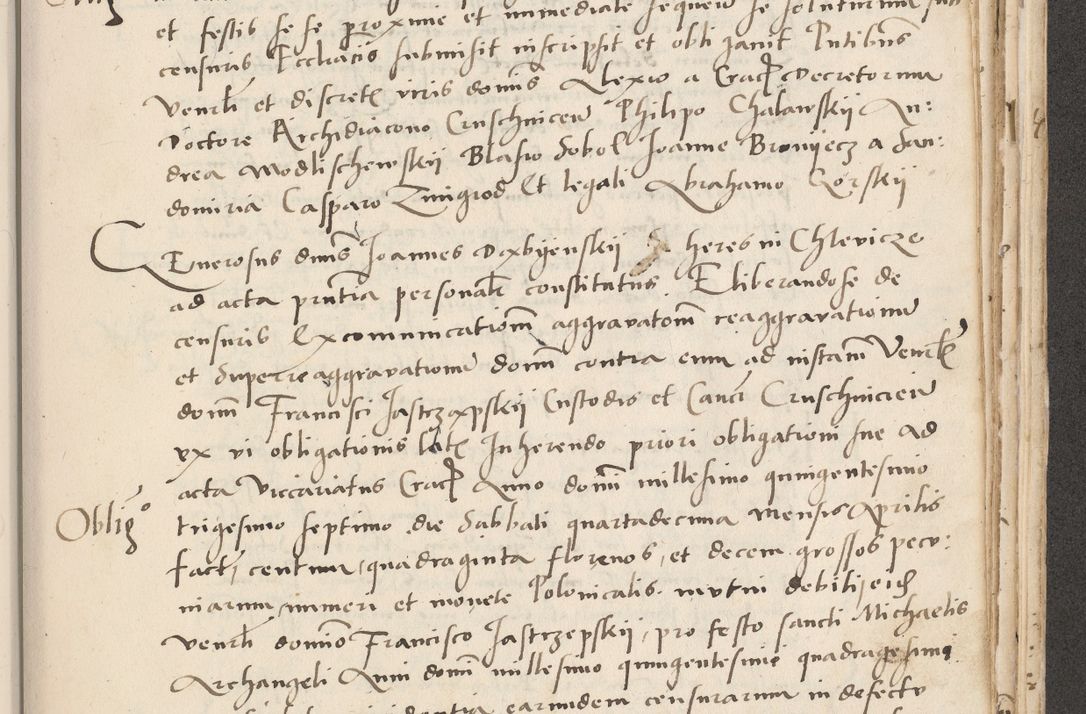 et festis se se proxime et immediate sequen se soluturum sub
censuris Ecclesiasticis submisit inscripsit et obligavit Pntibus
Venerbli et discret viris dominis Alexio a Crac Decretorum
Doctore Archidiacono Cruschvicen Philipo Chalawskÿ An:
drea Modlischewskÿ Blasio Sobol Joanne Bronÿecz a San:
domiria Casparo Zmigrod Et legali Abrahamo Gorskÿ
Generosus dnus Joannes Doxbÿenskÿ heres in Chlevicze
ad acta pntia personalr constitutus. Eliberando se de
censuris Excomunication aggravatom reaggravationum
et superreaggravationum domi contra eum ad instam Venerbl
domi Francisci Jastrzapskÿ Custodis et Canci Cruschvicien
vx vi obligationis late Inherendo priori obligationi sue ad
acta vicariatus Crac Anno domi millesimo quingentesimo
Oblig
trigesimo septimo die Sabbati quartadecima Mensis Aprilis
fact, centum, quadraginta florenos, et decem grossos pecu:
niarum, numeri et monete Polonicalis. mutui debiti, eid
Venerbli domino Francisco Jastrzepskÿ, pro festo sancti Michaelis
Archangeli Anni domi millesimo quingentesimi quadragesimi
earundem censurarum in defectu